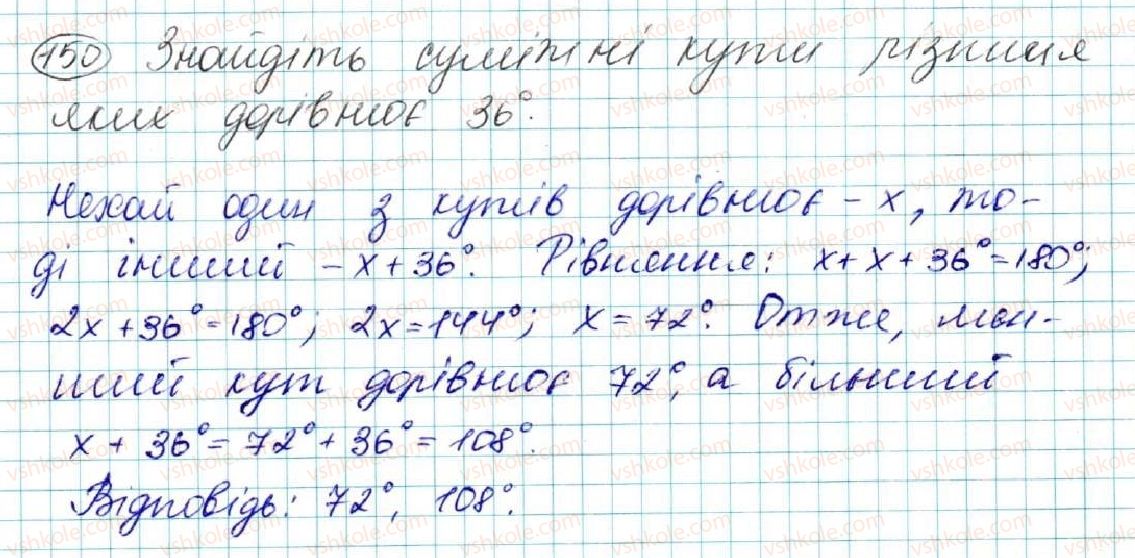 150 Знайдіть суміжні кути різниця
яких дорівнює 36°.
Нехай один з кутів дорівнює - x, то-
ді інший - x + 36°. Рівняння: x + x + 36° = 180°;
2x + 36° = 180°; 2x = 144°; x = 72°. Отже, мен-
ший кут дорівнює 72°, а більший
x + 36° = 72° + 36° = 108°.
Відповідь: 72°, 108°.